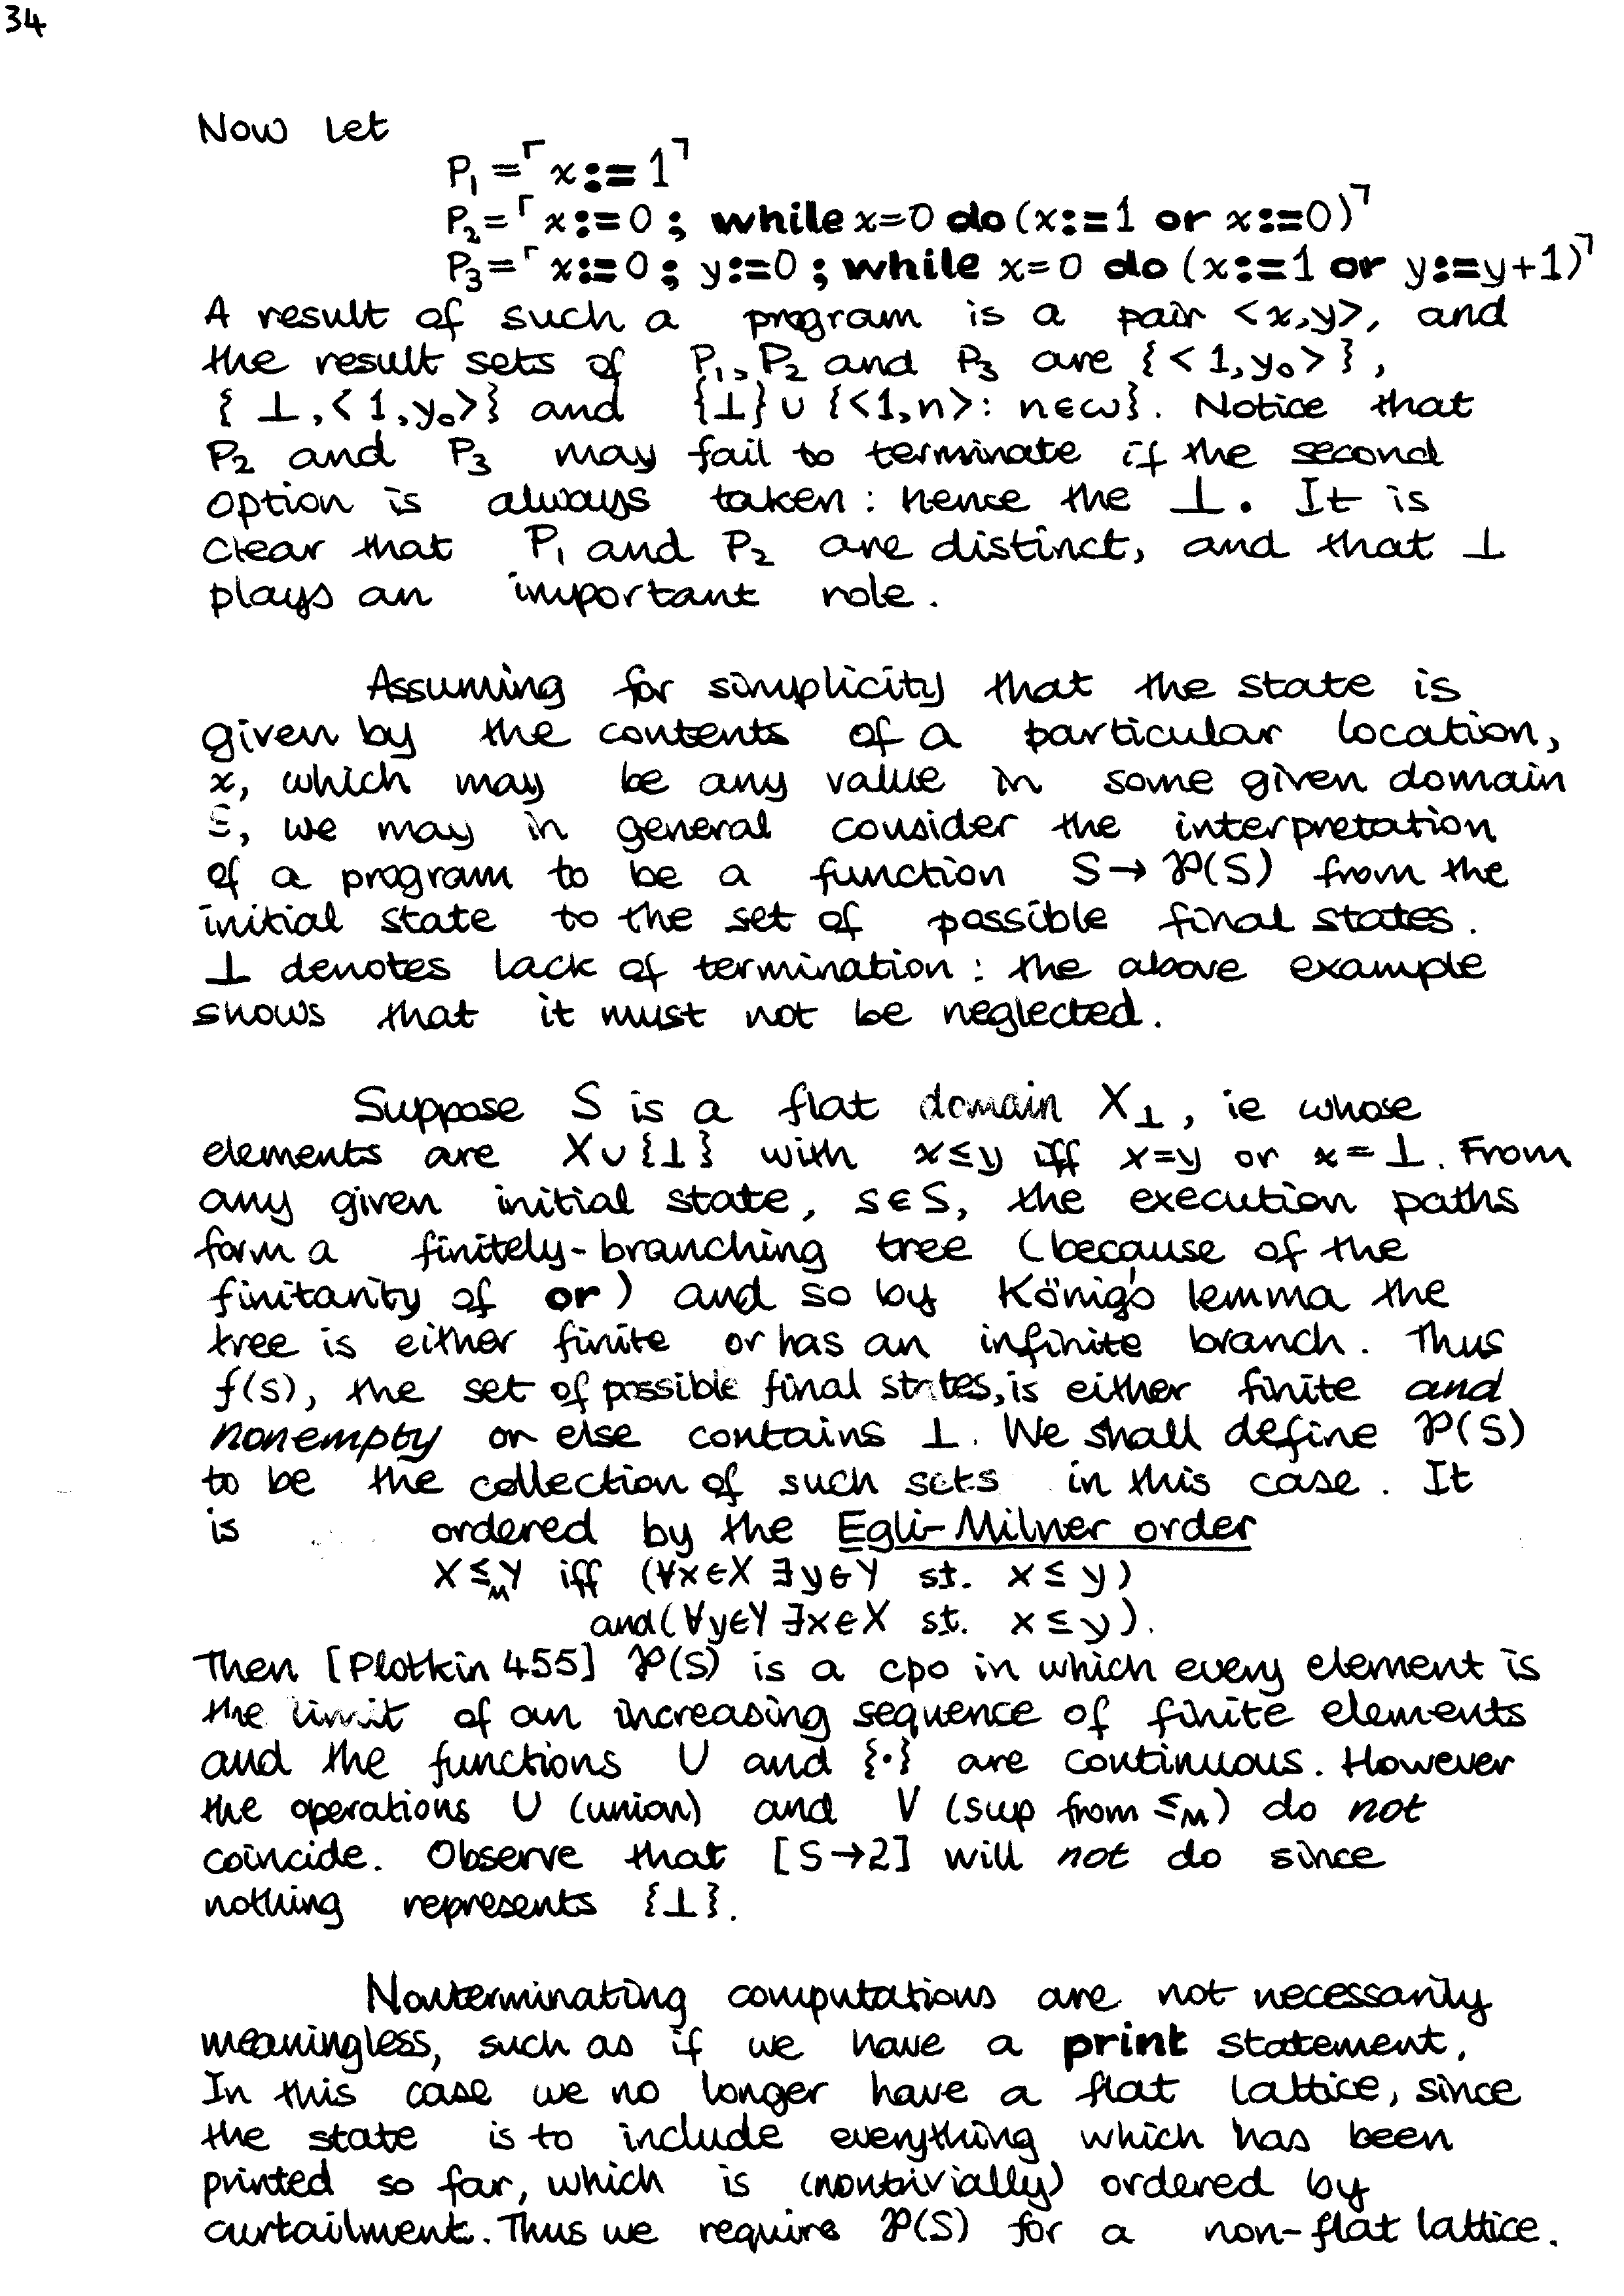 34
Now let
P₁ = ⌜x:=1⌝
P₂=⌜x:=0; while x=0 do (x:=1 or x:=0)⌝
P₃=⌜x:=0; y:=0; while x=0 do (x:=1 or y:=y+1)⌝
A result of such a program is a pair <x,y>, and
the result sets of P₁, P₂ and P₃ are {<1,y₀>},
{⊥,<1,y₀>} and {⊥}∪{<1,n>: n∈ω}. Notice that
P₂ and P₃ may fail to terminate if the second
option is always taken: hence the ⊥. It is
clear that P₁ and P₂ are distinct, and that ⊥
plays an important role.
Assuming for simplicity that the state is
given by the contents of a particular location,
x, which may be any value in some given domain
S, we may in general consider the interpretation
of a program to be a function S→℘(S) from the
initial state to the set of possible final states.
⊥ denotes lack of termination: the above example
shows that it must not be neglected.
Suppose S is a flat domain X⊥, ie whose
elements are X∪{⊥} with x≤y iff x=y or x=⊥. From
any given initial state, s∈S, the execution paths
form a finitely-branching tree (because of the
finitarity of or) and so by König's lemma the
tree is either finite or has an infinite branch. Thus
f(s), the set of possible final states, is either finite and
nonempty or else contains ⊥. We shall define ℘(S)
to be the collection of such sets in this case. It
is ordered by the Egli-Milner order
X≤_M Y iff (∀x∈X ∃y∈Y st. x≤y)
and (∀y∈Y ∃x∈X st. x≤y).
Then [Plotkin 455] ℘(S) is a cpo in which every element is
the limit of an increasing sequence of finite elements
and the functions ∪ and {·} are continuous. However
the operations ∪ (union) and ∨ (sup from ≤_M) do not
coincide. Observe that [S→2] will not do since
nothing represents {⊥}.
Nonterminating computations are not necessarily
meaningless, such as if we have a print statement.
In this case we no longer have a flat lattice, since
the state is to include everything which has been
printed so far, which is (nontivially) ordered by
curtailment. Thus we require ℘(S) for a non-flat lattice.